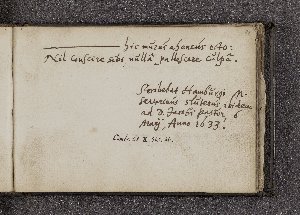 hic murus aheneus esto:
Nil conscire sibi nullâ pallescere culpâ.
Scribebat Hamburgi M.
Severinus Slüterus ibidem
ad D. Jacobi pastor, 6
Maij, Anno 1633.